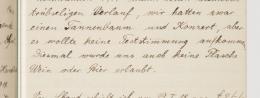 trübseligen Verlauf, wir hatten zwar
einen Tannenbaum und Konzert, aber
es wollte keine Feststimmung aufkommen,
diesmal wurde uns auch keine Flasche
Wein oder Bier erlaubt.